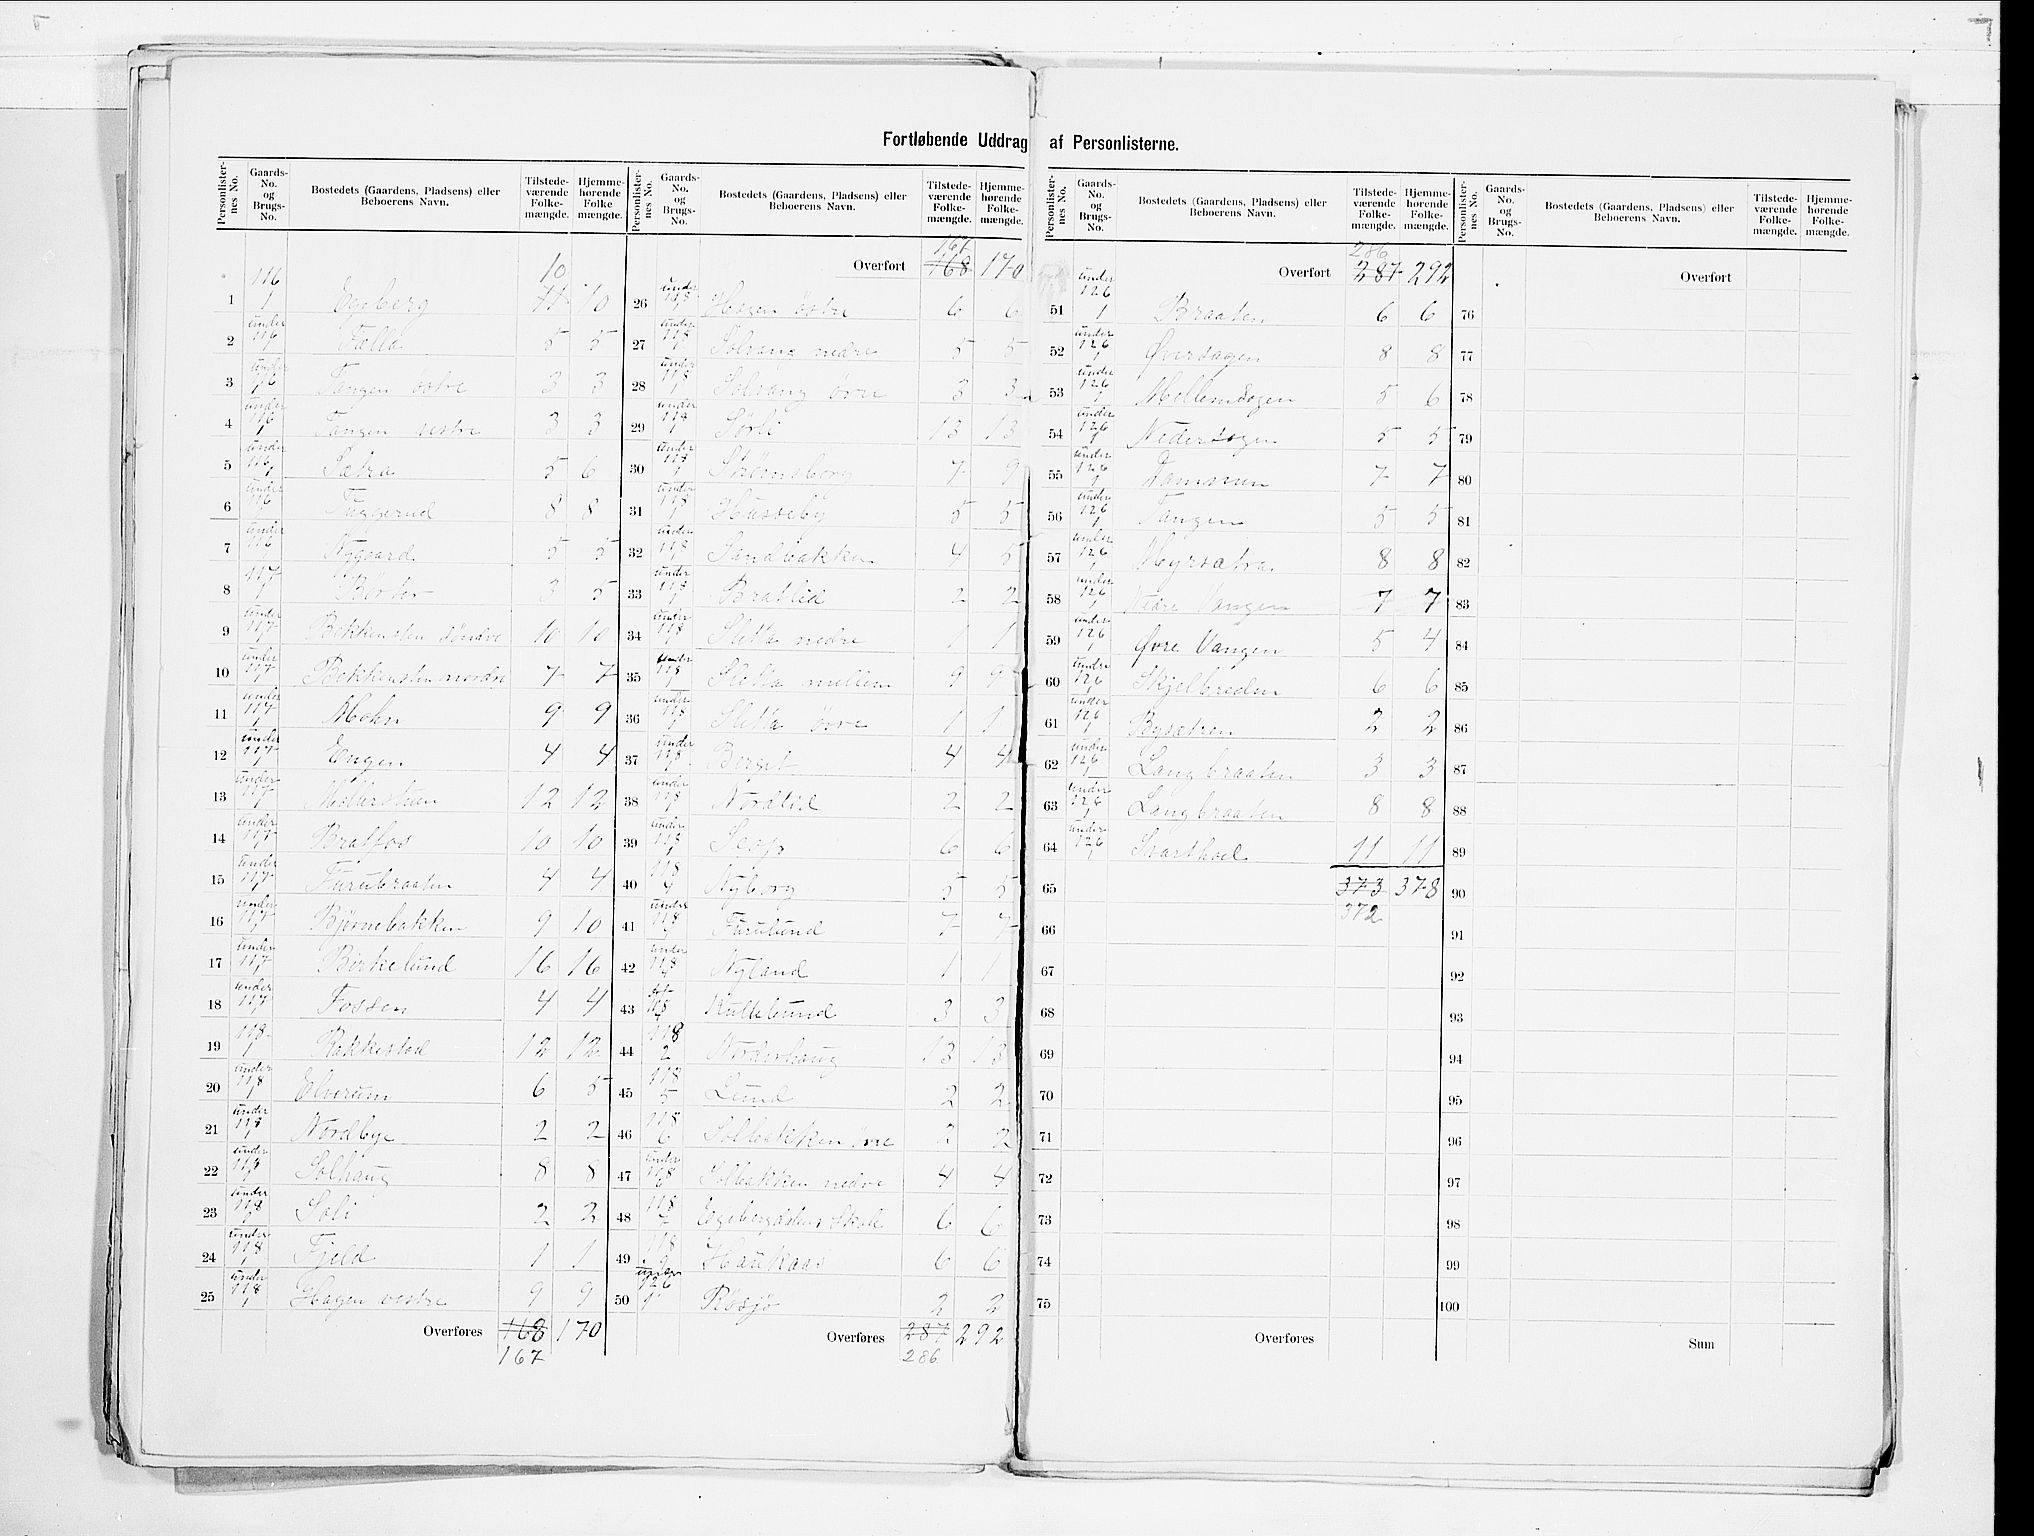 Fortløbende Uddrag af Personlisterne.
Personlister-nes No. Gaards-No. og Brugs-No. Bostedets (Gaardens, Pladsens) eller Beboerens Navn. Tilstede-værende Folke-mængde. Hjemme-hørende Folke-mængde.
1 116 1 Egeberg 11 10 10
2 under 116 1 Fælle 5 5
3 under 116 1 Tangen østre 3 3
4 under 116 1 Tangen vestre 3 3
5 under 116 1 Sætra 5 6
6 under 116 1 Tuggerud 8 8
7 under 116 1 Nygaard 5 5
8 117 1 Børter 3 5
9 under 117 1 Bekkensten søndre 10 10
10 under 117 1 Bekkensten nordre 7 7
11 under 117 1 Mohn 9 9
12 under 117 1 Engen 4 4
13 under 117 1 12 12
14 under 117 1 Bratfos 10 10
15 under 117 1 Furubraaten 4 4
16 under 117 1 Bjørnebakken 9 10
17 under 117 1 Birkelund 16 16
18 under 117 1 Fossen 4 4
19 118 1 Rakkestad 12 12
20 under 118 1 Elverum 6 5
21 under 118 1 Nordbye 2 2
22 under 118 1 Solhaug 8 8
23 under 118 1 Soli 2 2
24 under 118 1 Fjeld 1 1
25 under 118 1 Hagen vestre 9 9
Overføres 168 170
167
Personlister-nes No. Gaards-No. og Brugs-No. Bostedets (Gaardens, Pladsens) eller Beboerens Navn. Tilstede-værende Folke-mængde. Hjemme-hørende Folke-mængde.
167
Overført 168 170
26 under 118 1 Hagen østre 6 6
27 under 118 1 Solvang nedre 5 5
28 under 118 1 Solvang øvre 3 3
29 under 118 1 Sørli 13 13
30 under 118 1 7 9
31 under 118 1 Husseby 5 5
32 under 118 1 Sandbakken 4 5
33 under 118 1 Bratlid 2 2
34 under 118 1 Sletta nedre 1 1
35 under 118 1 Sletta mellem 9 9
36 under 118 1 Sletta øvre 1 1
37 under 118 1 Berget 4 4
38 under 118 1 Nordlid 2 2
39 under 118 1 6 6
40 118 4 Nyborg 5 5
41 under 118 4 Furulund 7 7
42 under 118 4 Nyland 1 1
43 118 4 Kullebund 3 3
44 118 2 Norderhaug 13 13
45 118 5 Lund 2 2
46 118 6 Solbakken øvre 2 2
47 under 118 6 Solbakken nedre 4 4
48 118 7 Egebergdalens Skole 6 6
49 118 9 Haukaas 6 6
50 under 126 1 Røsjø 2 2
Overføres 287 292
286
Personlister-nes No. Gaards-No. og Brugs-No. Bostedets (Gaardens, Pladsens) eller Beboerens Navn. Tilstede-værende Folke-mængde. Hjemme-hørende Folke-mængde.
286
Overført 287 292
51 under 126 1 Braaten 6 6
52 under 126 1 Øversagen 8 8
53 under 126 1 Mellemsagen 5 6
54 under 126 1 Nedersagen 5 5
55 under 126 1 Dammen 7 7
56 under 126 1 Tangen 5 5
57 under 126 1 Myrsætra 8 8
58 under 126 1 Nedre Vangen 7 7
59 under 126 1 Øvre Vangen 5 4
60 under 126 1 Skjelbreden 6 6
61 under 126 1 Bysætren 2 2
62 under 126 1 Langbraaten 3 3
63 under 126 1 Langbraaten 8 8
64 under 126 1 Svarthoel 11 11
65 373 378
372
66
67
68
69
70
71
72
73
74
75
Overføres
Personlister-nes No. Gaards-No. og Brugs-No. Bostedets (Gaardens, Pladsens) eller Beboerens Navn. Tilstede-værende Folke-mængde. Hjemme-hørende Folke-mængde.
Overført
76
77
78
79
80
81
82
83
84
85
86
87
88
89
90
91
92
93
94
95
96
97
98
99
100
Sum